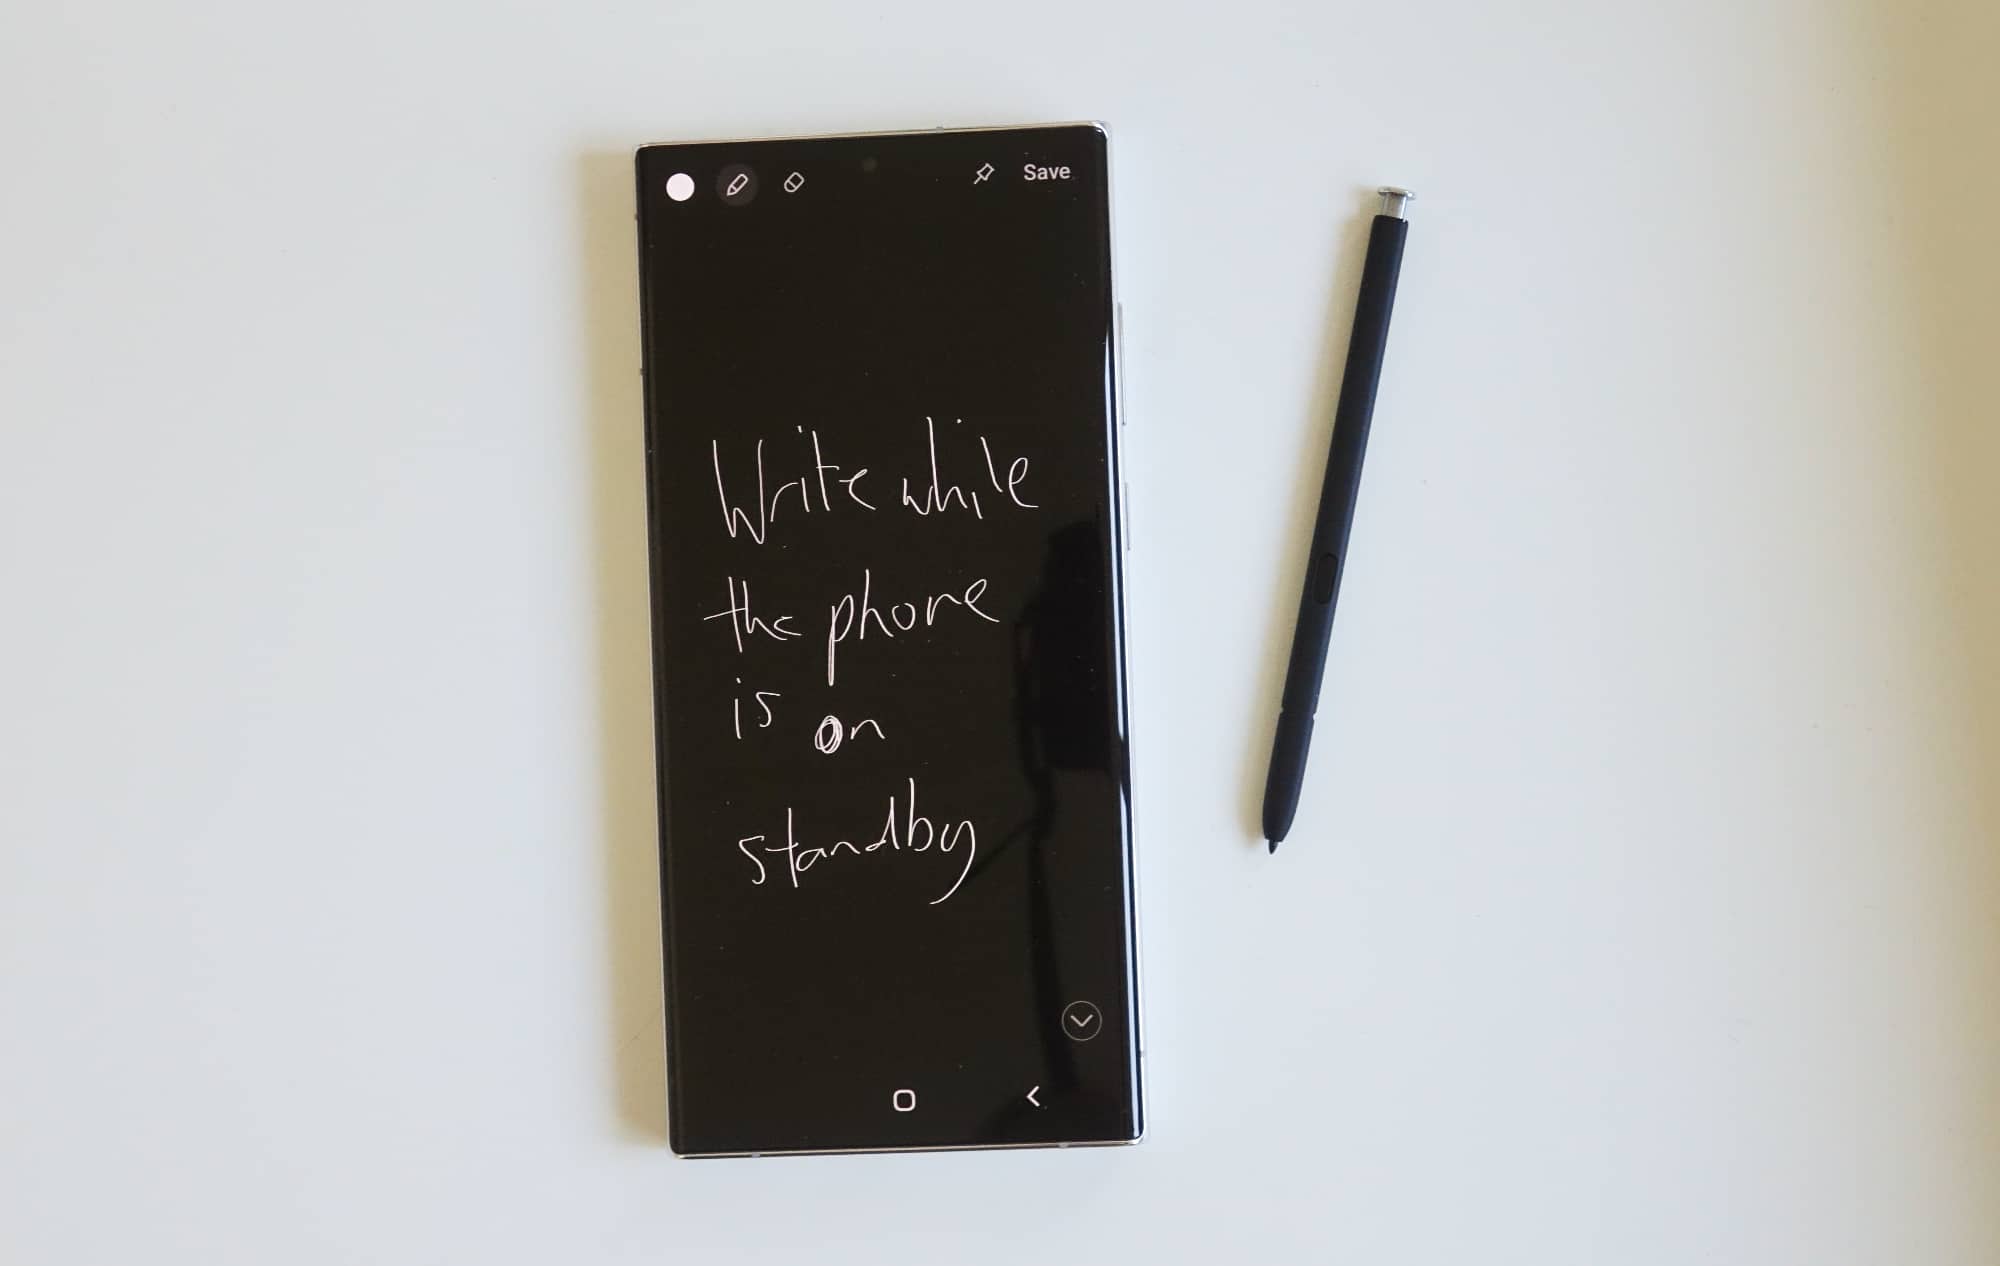 Save
Write while
the phone
is on
standby